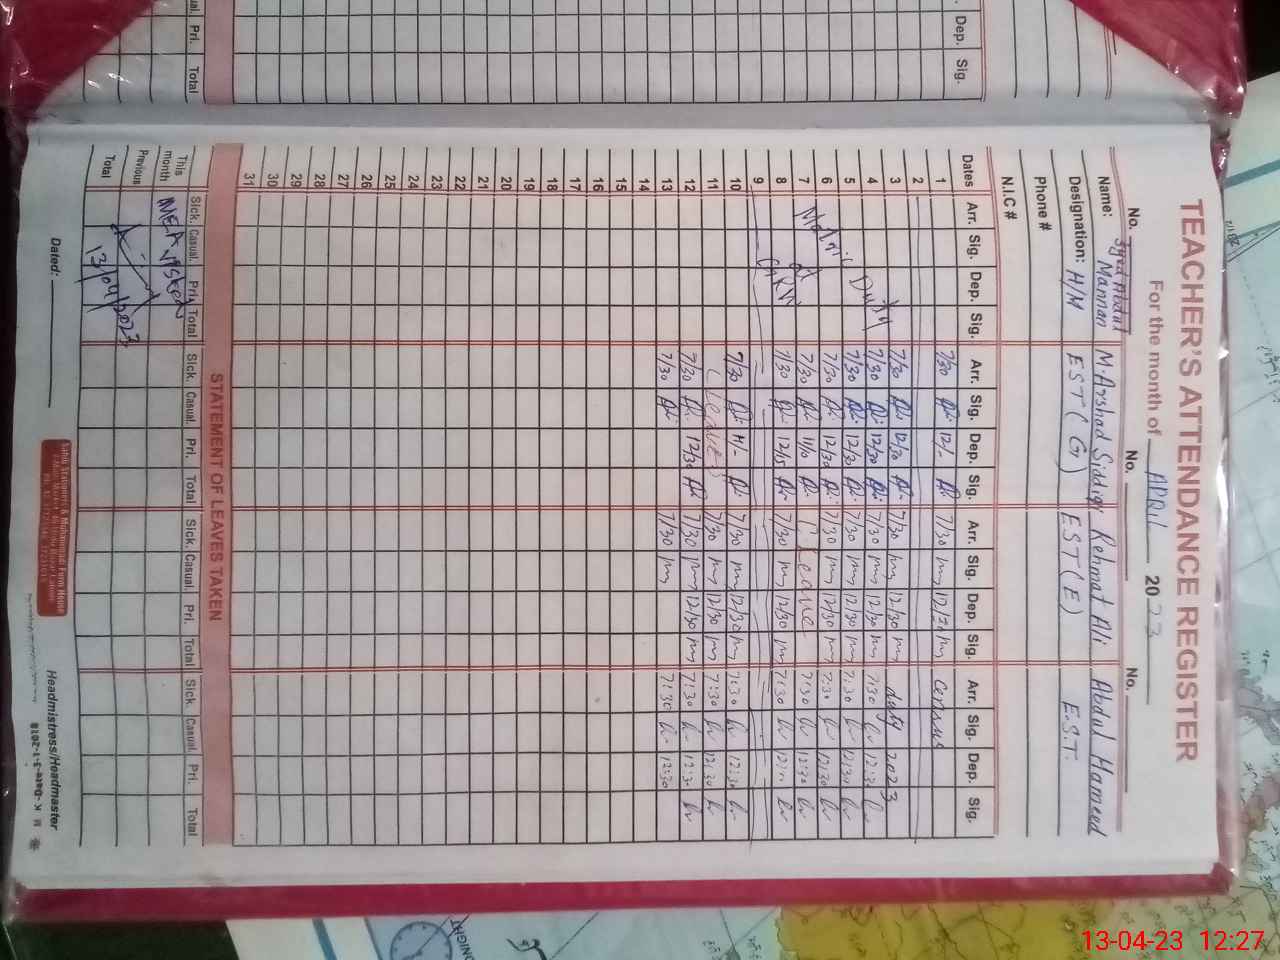 TEACHER'S ATTENDANCE REGISTER
For the month of APRIL 2023
No. No. No.
Name: Syed Abdul Mannan M. Arshad Siddiqi Rehmat Ali Abdul Hameed
Designation: H/M EST (G) EST (E) E.S.T.
Phone #
N.I.C #
Dates Arr. Sig. Dep. Sig. Arr. Sig. Dep. Sig. Arr. Sig. Dep. Sig. Arr. Sig. Dep. Sig.
1 7/30 12/- 7/30 Census
2
3 7/30 12/30 7/30 12/30 duty 2023
4 7/30 12/30 7/30 12/30 7:30 12:30
5 7/30 12/30 7/30 12/30 7:30 12:30
6 7/30 12/30 7/30 12/30 7:30 12:30
7 7/30 11/10 Leave 7:30 12:30
8 7/30 12/15 7/30 12/30 7:30
Matric Duty at
9
10 7/30 7/30 12/30 7:30 12:30
11 (Leave) 7/30 12/30 7:30 12:30
12 7/30 12/30 7/30 12/30 7:30 12:30
13 7/30 7/30 7:30 12:30
14
15
16
17
18
19
20
21
22
23
24
25
26
27
28
29
30
31
STATEMENT OF LEAVES TAKEN
Sick. Casual. Pri. Total Sick. Casual. Pri. Total Sick. Casual. Pri. Total Sick. Casual. Pri. Total
This month
Previous
Total
MEA VISITED
13/04/2023
Dated:
Headmistress/Headmaster
Dep. Sig.
Pri. Total
13-04-23 12:27